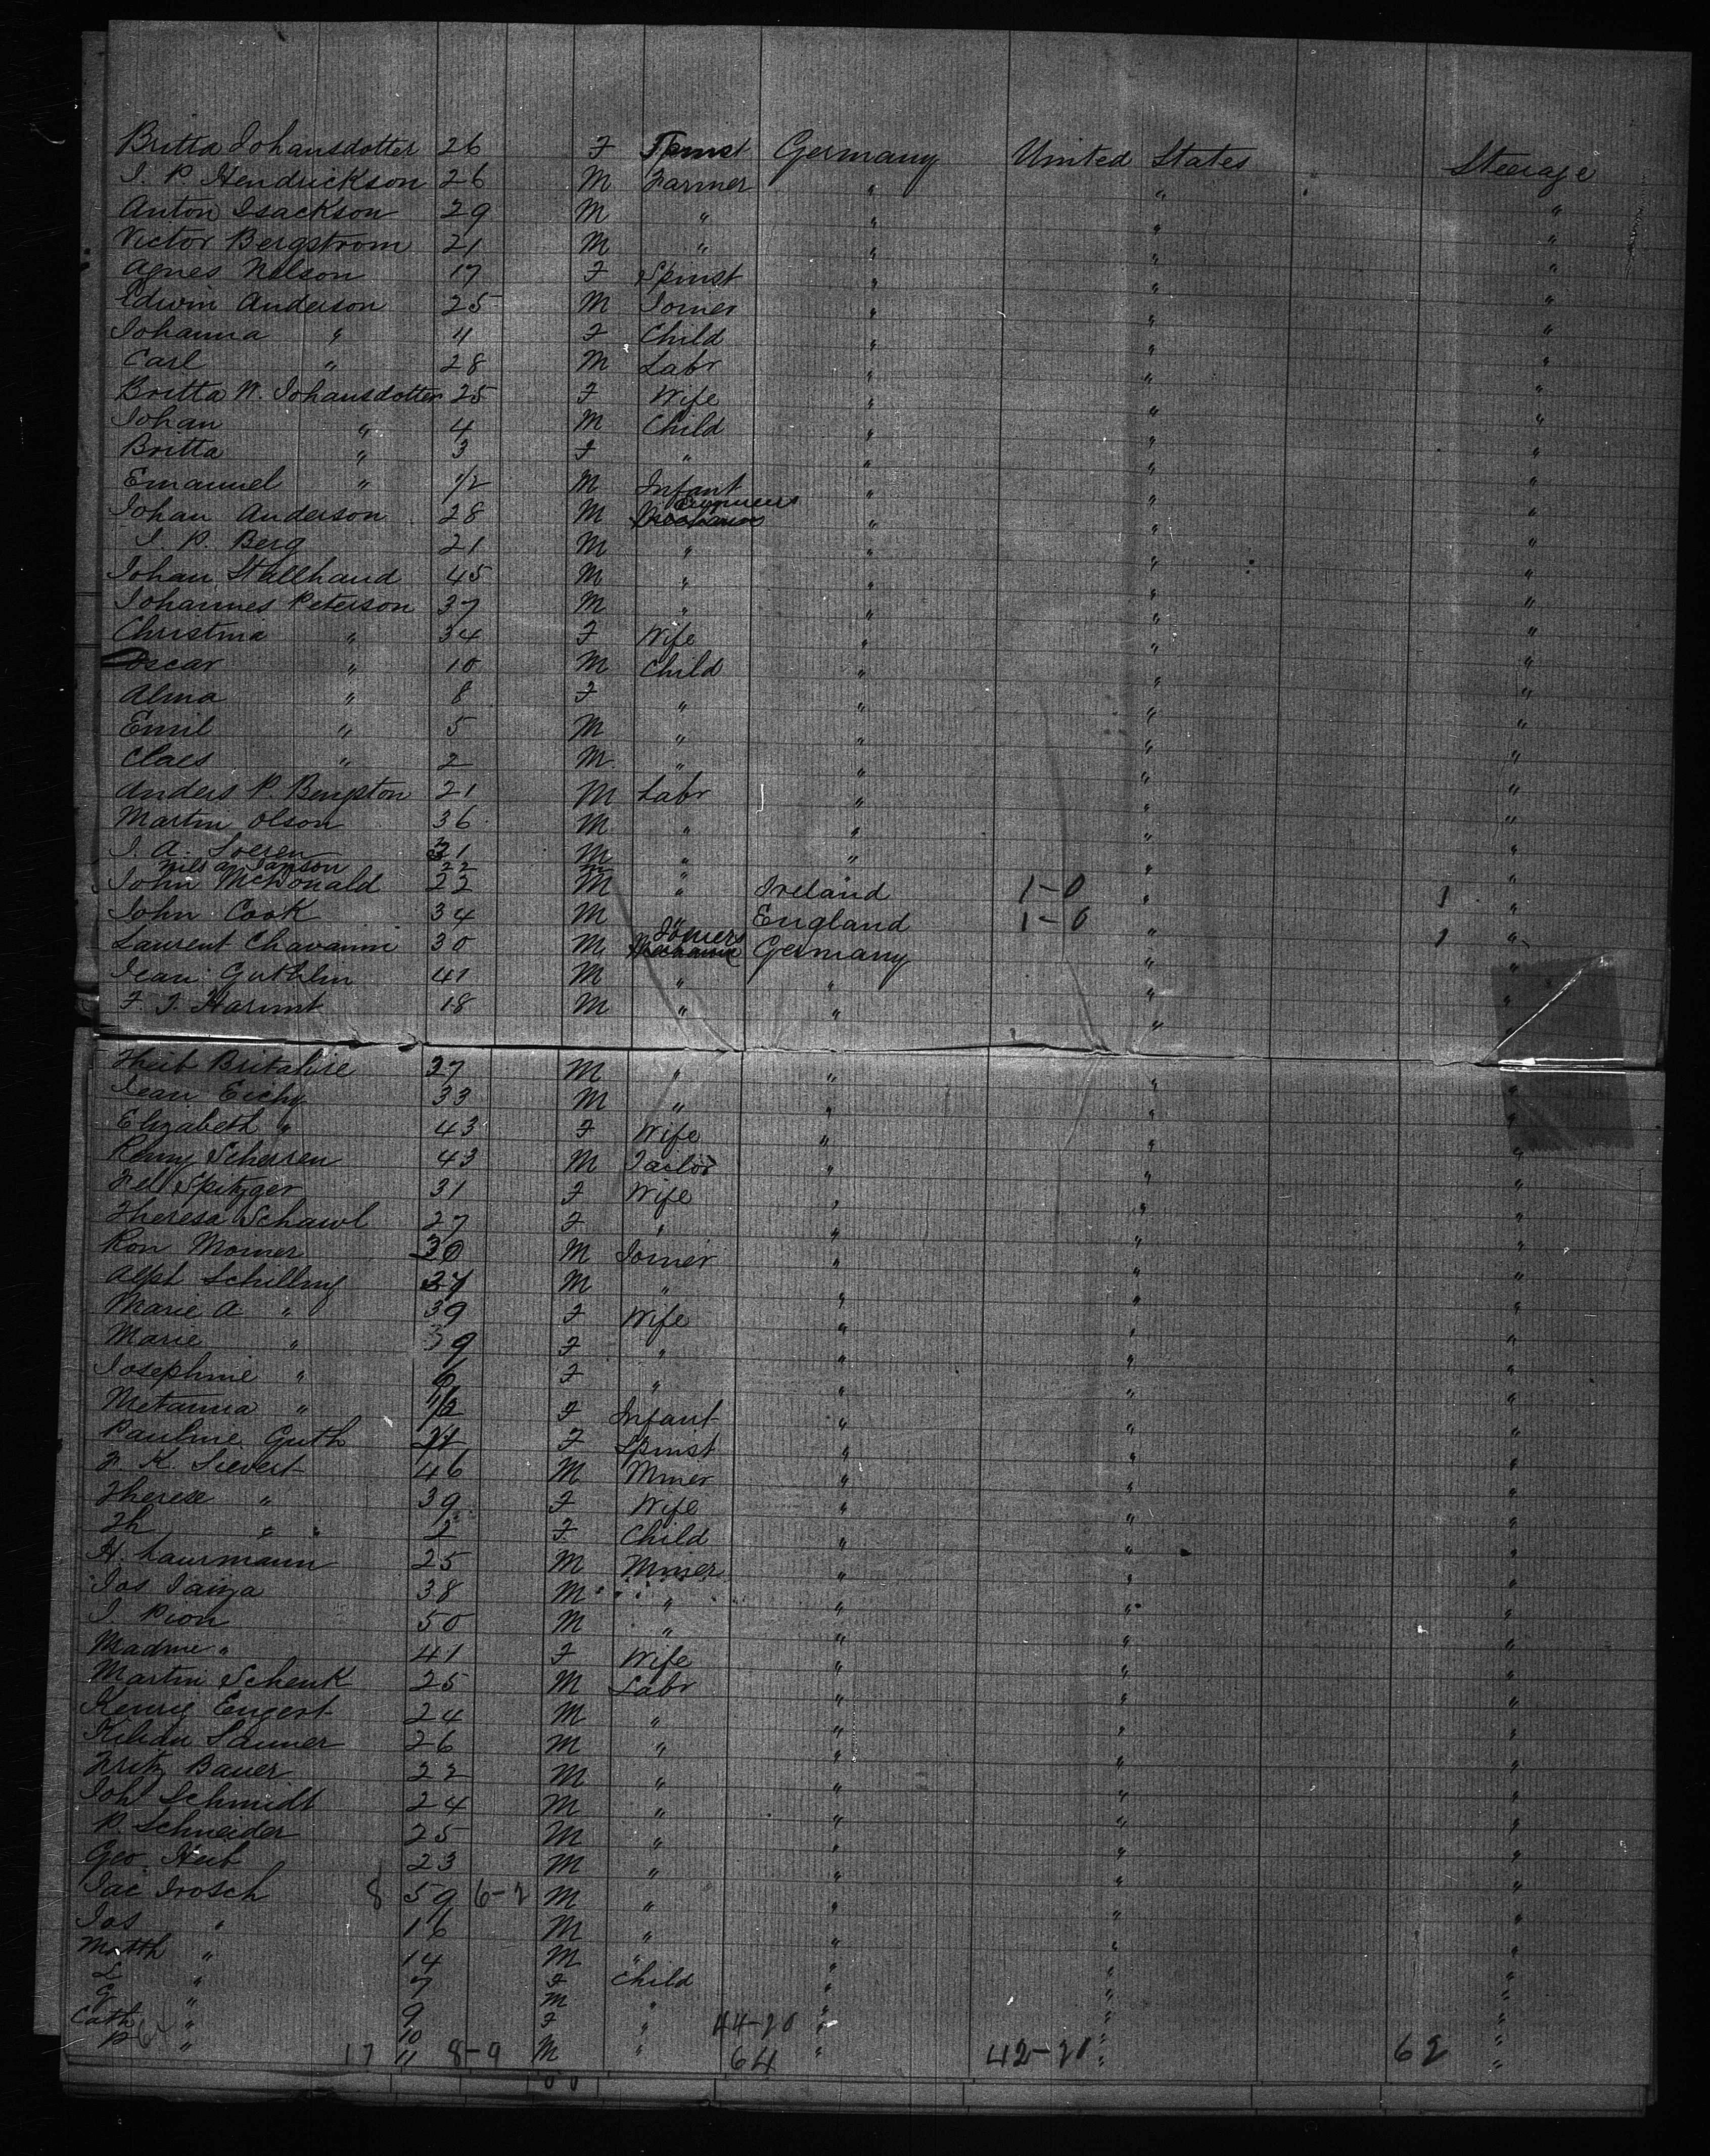 Britta Johansdotter 26 F Spinst Germany United States Steerage
J. P. Hendrickson 26 M Farmer " " "
Anton Isackson 29 M " " " "
Victor Bergstrom 21 M " " " "
Agnes Nelson 17 F Spinst " " "
Edwin Anderson 25 M Joiner " " "
Johanna " 4 F Child " " "
Carl " 28 M Labr " " "
Britta W. Johansdotter 25 F Wife " " "
Johan " 4 M Child " " "
Britta " 3 F " " " "
Emanuel " 1/2 M Infant " " "
Johan Anderson 28 M " " "
J. P. Berg 21 M " " " "
Johan Stallhand 45 M " " " "
Johannes Peterson 37 M " " " "
Christina " 34 F Wife " " "
Oscar " 10 M Child " " "
Alma " 8 F " " " "
Emil " 5 M " " " "
Claes " 2 M " " " "
Anders P. Bengston 21 M Labr " " "
Martin Olson 36 M " " " "
J. A. 31 M " " " "
Nils A. Janson 22 M
John McDonald 22 M " Ireland 1-0 " 1 "
John Cook 34 M " England 1-0 " 1 "
Laurent Chavanni 30 M Joiners Germany " "
Jean Guthlin 41 M " " " "
F. J. Harimt 18 M " " " "
27 M " " " "
Jean Eichy 33 M " " " "
Elizabeth " 43 F Wife " " "
Remy Scherren 43 M Tailor " " "
Fel Spitzger 31 F Wife " " "
Theresa Schawl 27 F " " " "
Kon Moiner 30 M Joiner " " "
Alph Schilling M " " " "
Marie A " 39 F Wife " " "
Marie " 39 F " " " "
Josephine " 6 F " " " "
Metanna " F Infant " " "
Pauline Guth F Spinst " " "
F. K. Sievert 46 M Miner " " "
Therese " 39 F Wife " " "
Th " 2 F Child " " "
H. Laurmann 25 M Miner " " "
Jos 38 M " " " "
J. Pion 50 M " " " "
Madme " 41 F Wife " " "
Martin Schenk 25 M Labr " " "
Engert 24 M " " " "
Kilian Sauner 26 M " " " "
Fritz Bauer 22 M " " " "
Joh Schmidt 24 M " " " "
P. Schneider 25 M " " " "
Geo. Heib 23 M " " " "
Jac Trosch 8 59 6-2 M " " " "
Jos " 16 M " " " "
Matth " 14 M " " " "
L " 7 F Child " " "
G " 9 M " " " "
Cath " 10 F " 44-20 " " "
P " 17 11 8-9 M " 64 " 42-20 " 62 "